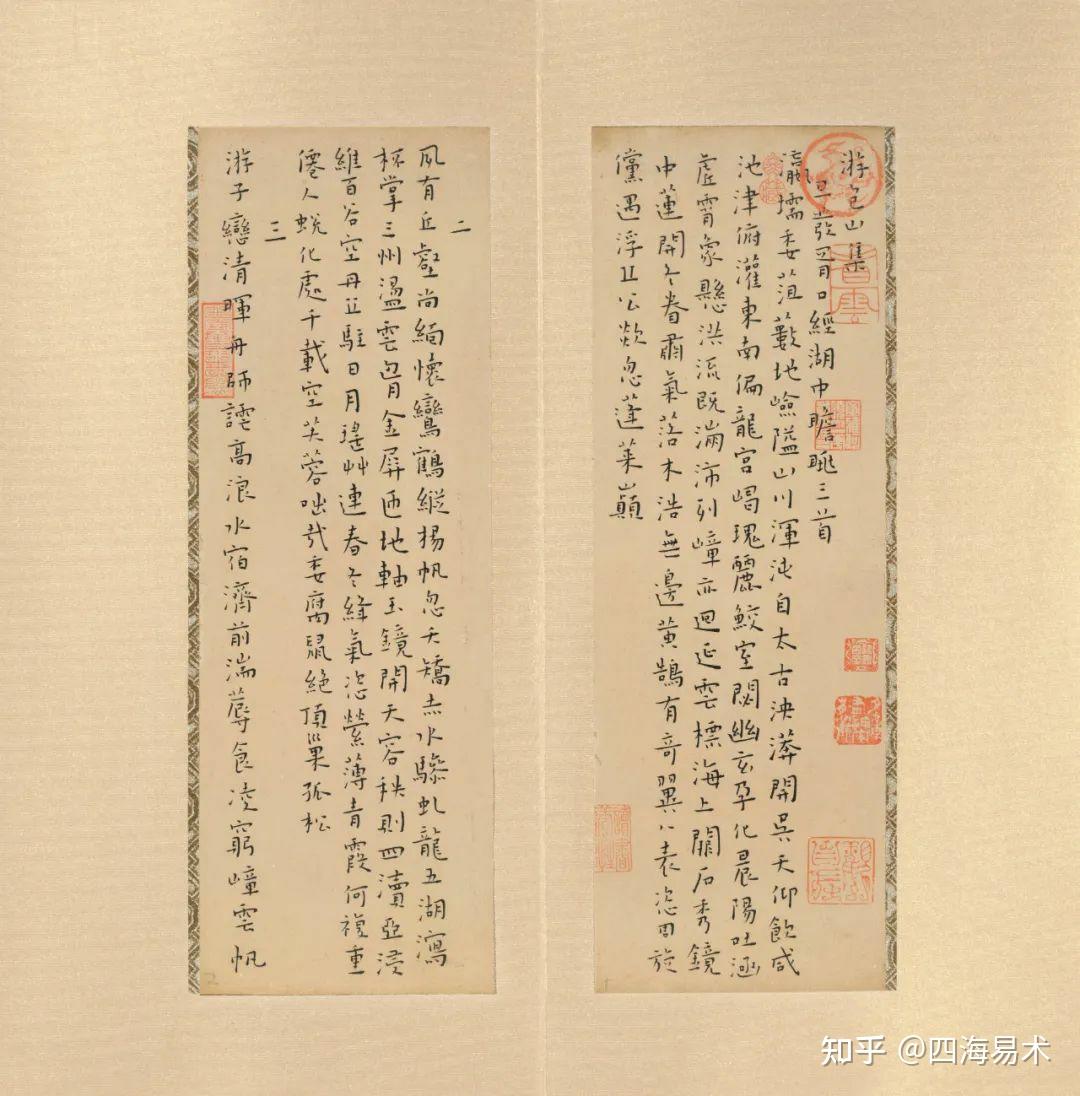 游包山集
旦發胥口經湖中瞻眺三首
瀛壖委菹藪地嶮隘山川渾沌自太古泱漭開吳天仰飲咸
池津俯灌東南偏龍宮嵑瑰麗鮫室閟幽玄孕化晨陽吐涵
虛霄象懸洪流既滿沛列嶂亦迴延雲標海上關石秀鏡
中蓮開冬眷肅氣落木浩無邊黃鵠有奇翼八表恣回旋
儻遇浮丘公欻忽蓬萊巔
二
夙有丘壑尚緬懷鸞鶴縱揚帆忽夭矯赤水驂虬龍五湖瀉
杯掌三州盪雲胷金屏匝地軸玉鏡開天容秩則四瀆亞浸
維百谷空丹丘駐日月瑤艸連春冬絳氣恣縈薄青霞何複重
僊人蛻化處千載空芙蓉咄哉委腐鼠絕頂巢孤松
三
游子戀清暉舟師譁高浪水宿濟前湍蓐食凌窮嶂雲帆
知乎 @四海易术